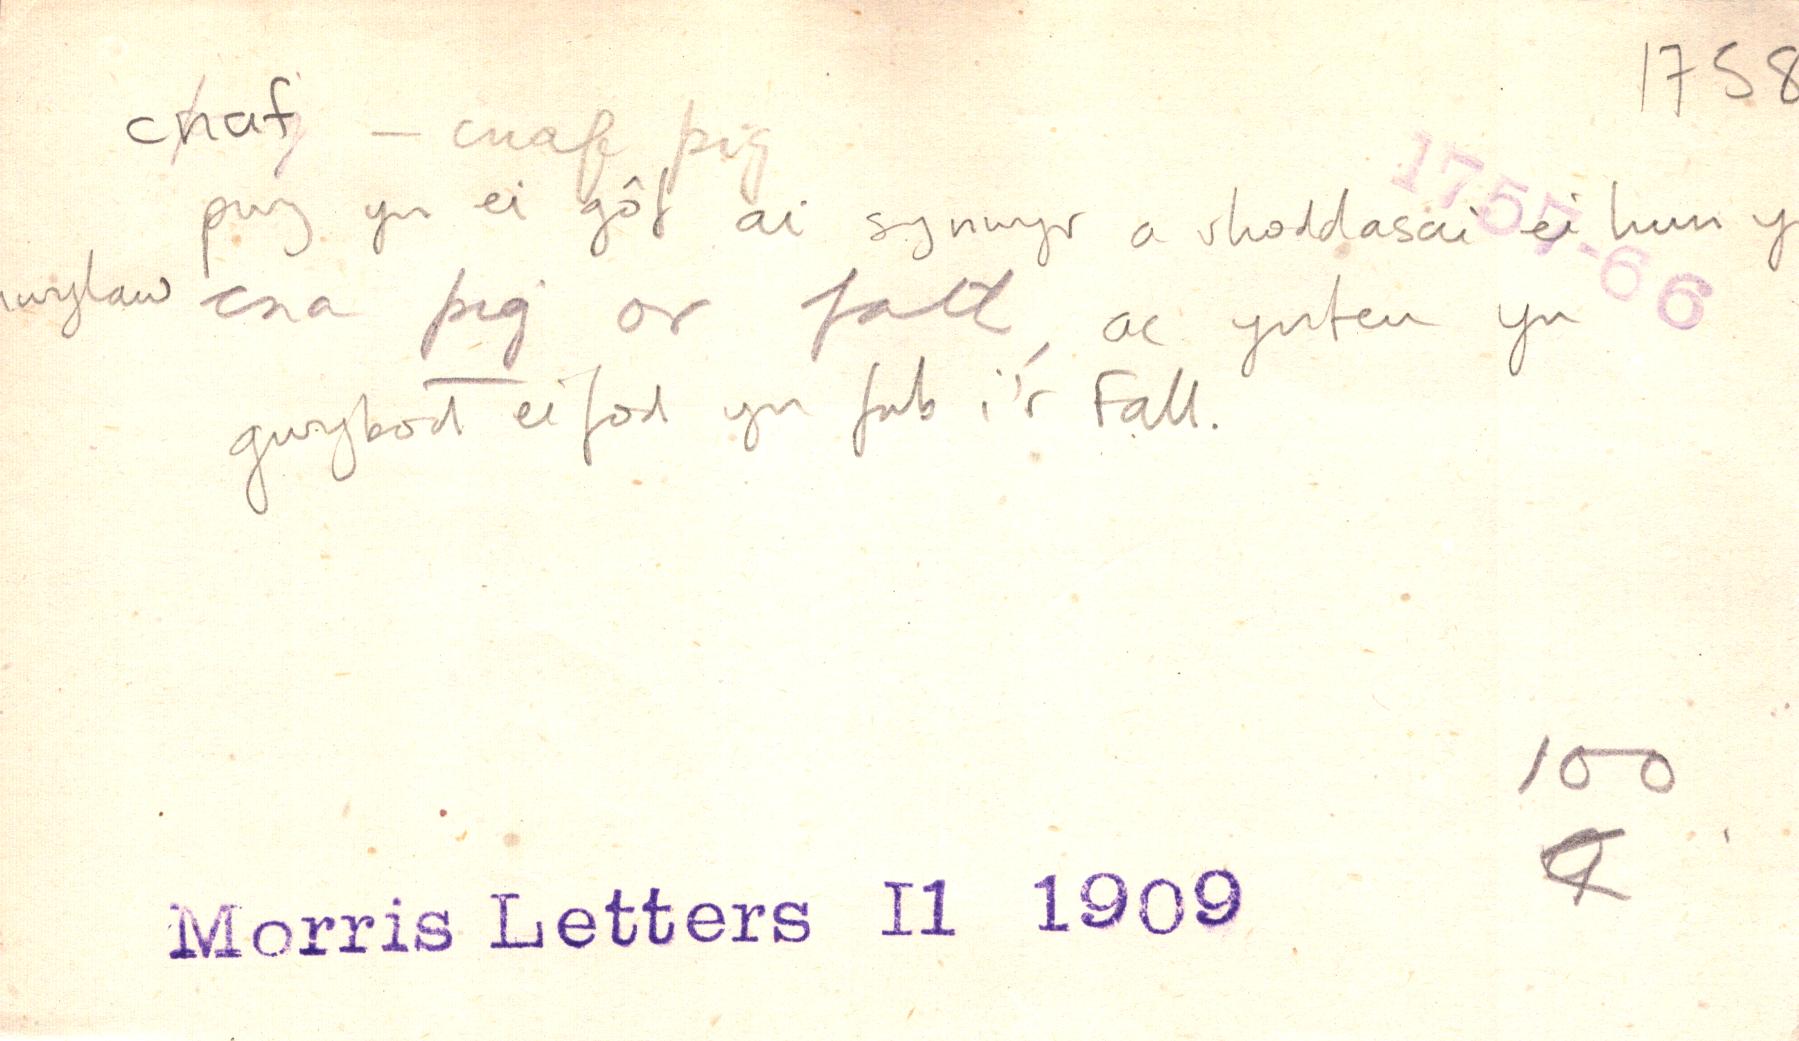 1758
cnaf — cnaf pig
1757-66
pwy yn ei gôf ai synwyr a rhoddasai ei hun y
nwylaw cna pig or fall, ac ynteu yn
gwybod ei fod yn fab i'r Fall.
100
Morris Letters I1 1909